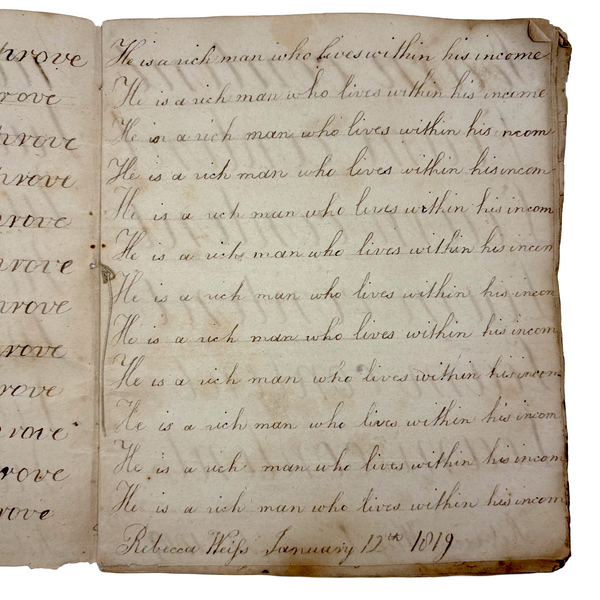 prove
He is a rich man who lives within his income
rove
He is a rich man who lives within his income
prove
He is a rich man who lives within his incom
prove
He is a rich man who lives within his incom
rove
He is a rich man who lives within his incom
prove
He is a rich man who lives within his incom
prove
He is a rich man who lives within his incom
rove
He is a rich man who lives within his incom
rove
He is a rich man who lives within his incom
prove
He is a rich man who lives within his incom
rove
He is a rich man who lives within his incom
rove
He is a rich man who lives within his incom
Rebecca Weiſs January 12th 1819